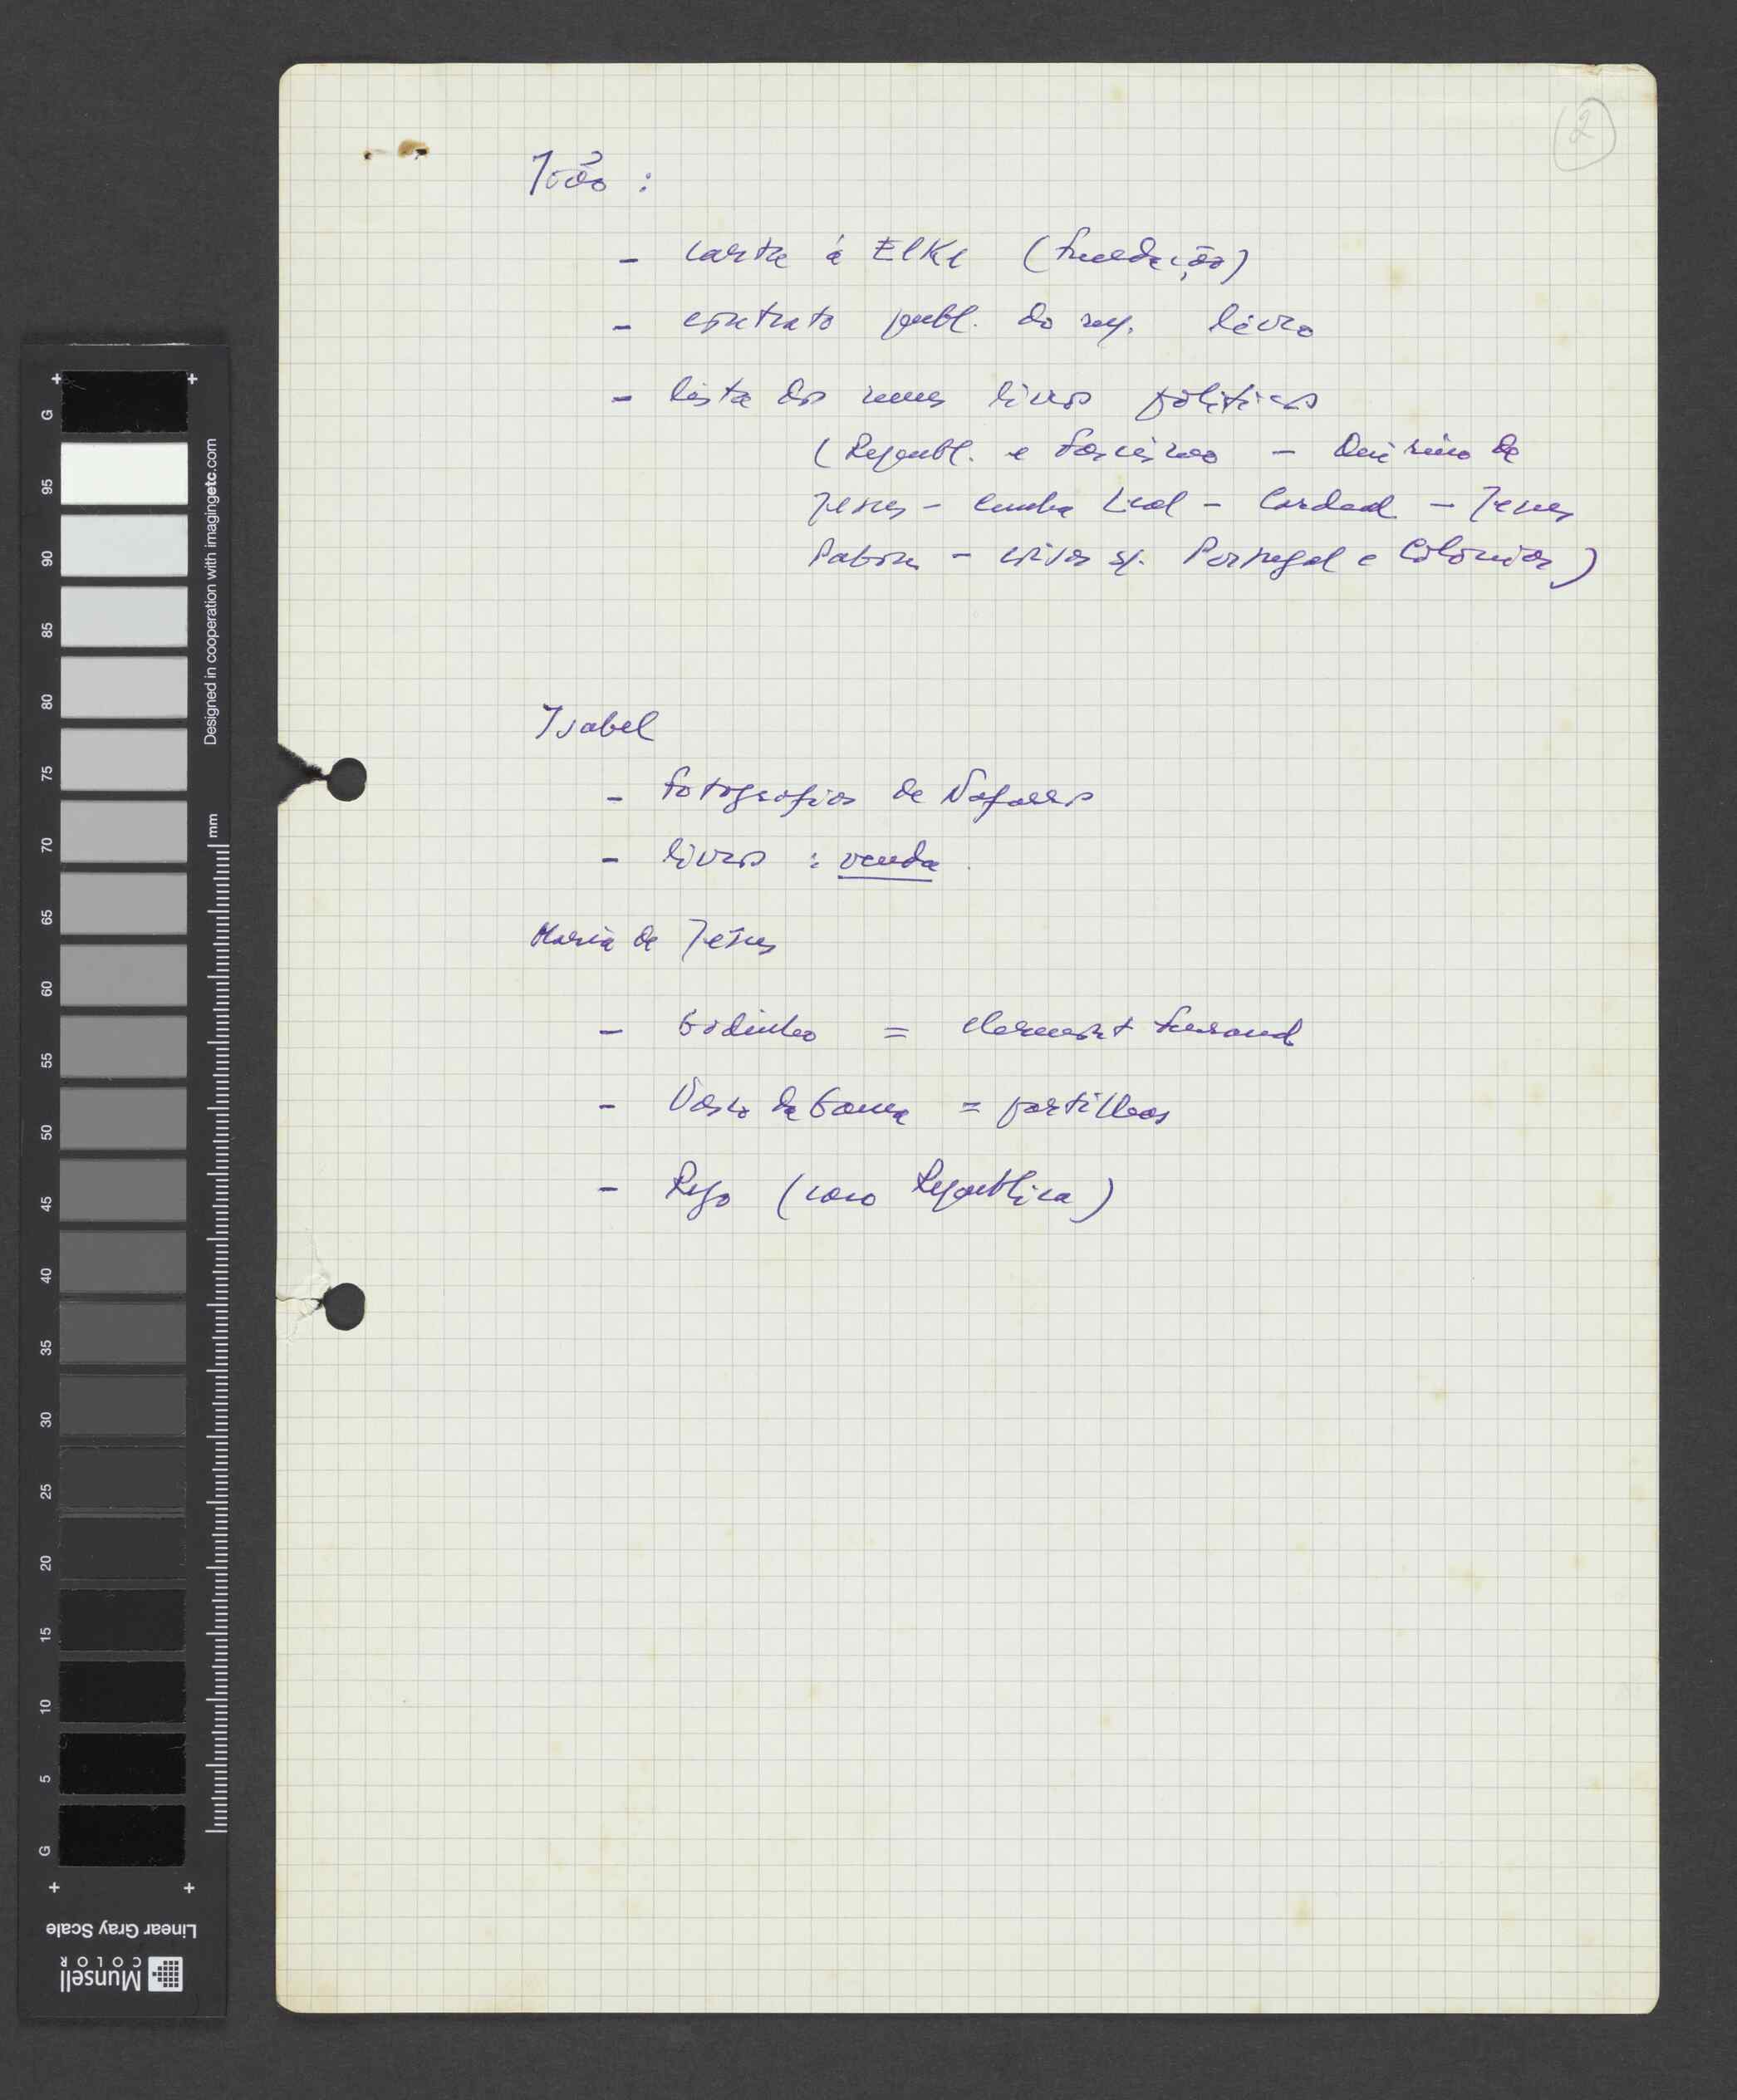 2
João :
- carta à Elke (Fundação)
- contrato publ. do meu livro
- lista dos meus livros políticos
(Republ. e Fascismo - Quirino de
Jesus - Cunha Leal - Cardeal - Jesus
Pabón - coisas s/. Portugal e Colónias)
Isabel
- fotografias de Nafarros
- livros : venda
Maria de Jesus
- Godinho =
- Vasco da Gama = partilhas
- Rego (caso República)
+ +
G
95
90
85
80
75
70
65
60
55
50
45
40
35
30
25
20
15
10
5
G
+ +
Designed in cooperation with imagingetc.com
mm
Linear Gray Scale
Munsell
COLOR